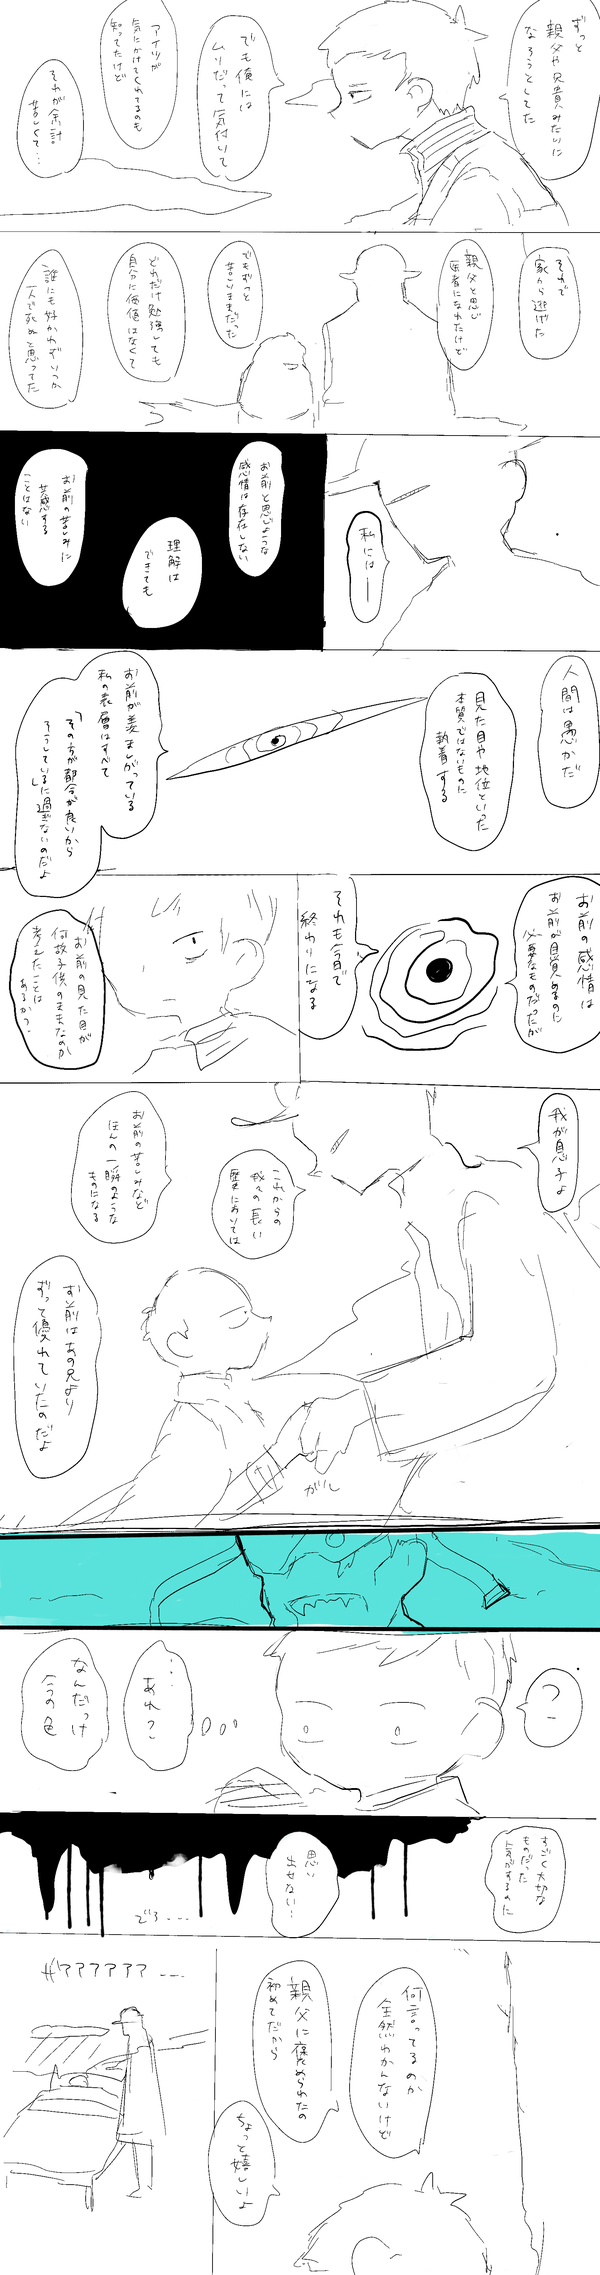 ずっと
親父や兄貴みたいに
なろうとしてた
でも俺には
ムリだって気付いて
アイツが
気にかけてくれてるのも
知ってたけど
それが余計
苦しくて…
それで
家から逃げた
親父と同じ
医者になれたけど
でもずっと
苦しいままだった
どれだけ勉強しても
自分に価値はなくて
誰にも好かれずいつか
一人で死ぬと思ってた
私には――
お前と同じような
感情は存在しない
理解は
できても
お前の苦しみに
共感する
ことはない
人間は愚かだ
見た目や地位といった
本質ではないものに
執着する
お前が羨ましがっている
私の表層はすべて
「その方が都合が良いから
そうしている」に過ぎないのだよ
お前の感情は
お前が目覚めるのに
必要なものだったが
それも今日で
終わりになる
お前の見た目が
何故子供のままなのか
考えたことは
あるか?
我が息子よ
これからの
我々の長い
歴史においては
お前の苦しみなど
ほんの一瞬のような
ものになる
お前はあの兄より
ずっと優れていたのだよ
がし
?
…
あれ?
なんだっけ
今の色
すごく大切な
ものだった
気がするのに
思い
出せない…
でろ…
何言ってるのか
全然わかんないけど
親父に褒められたの
初めてだから
ちょっと嬉しいよ
ガアアアアアア…